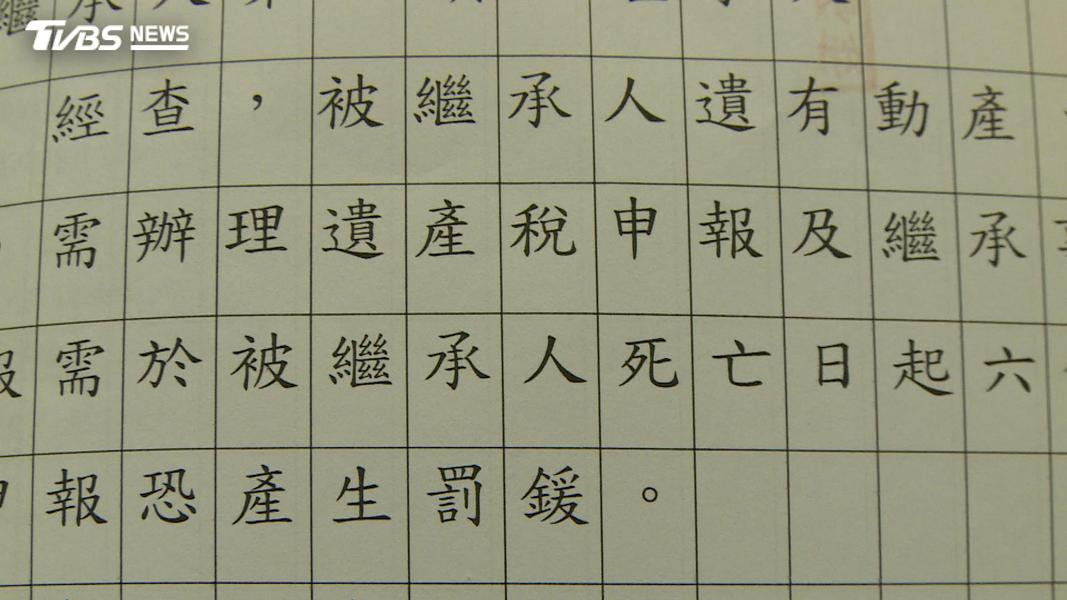 TVBS NEWS
經查，被繼承人遺有動產
需辦理遺產稅申報及繼承
報需於被繼承人死亡日起六
報恐產生罰鍰。